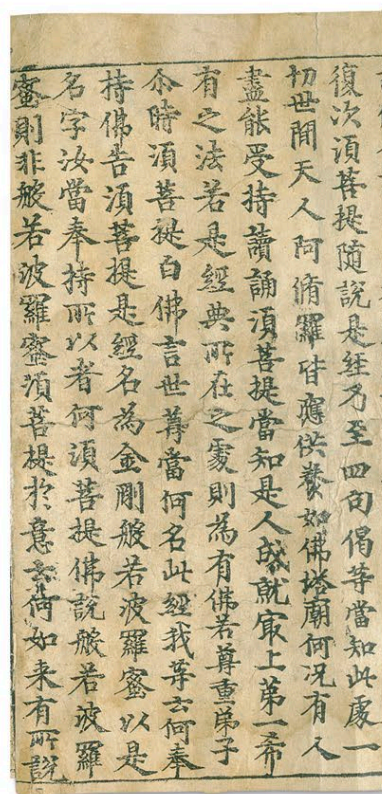 復次須菩提隨說是經乃至四句偈等當知此處一
切世間天人阿脩羅皆應供養如佛塔廟何況有人
盡能受持讀誦須菩提當知是人成就㝡上第一希
有之法若是經典所在之處則為有佛若尊重弟子
尒時須菩提白佛言世尊當何名此經我等云何奉
持佛告須菩提是經名為金剛般若波羅蜜以是
名字汝當奉持所以者何須菩提佛說般若波羅
蜜則非般若波羅蜜須菩提於意云何如来有所說